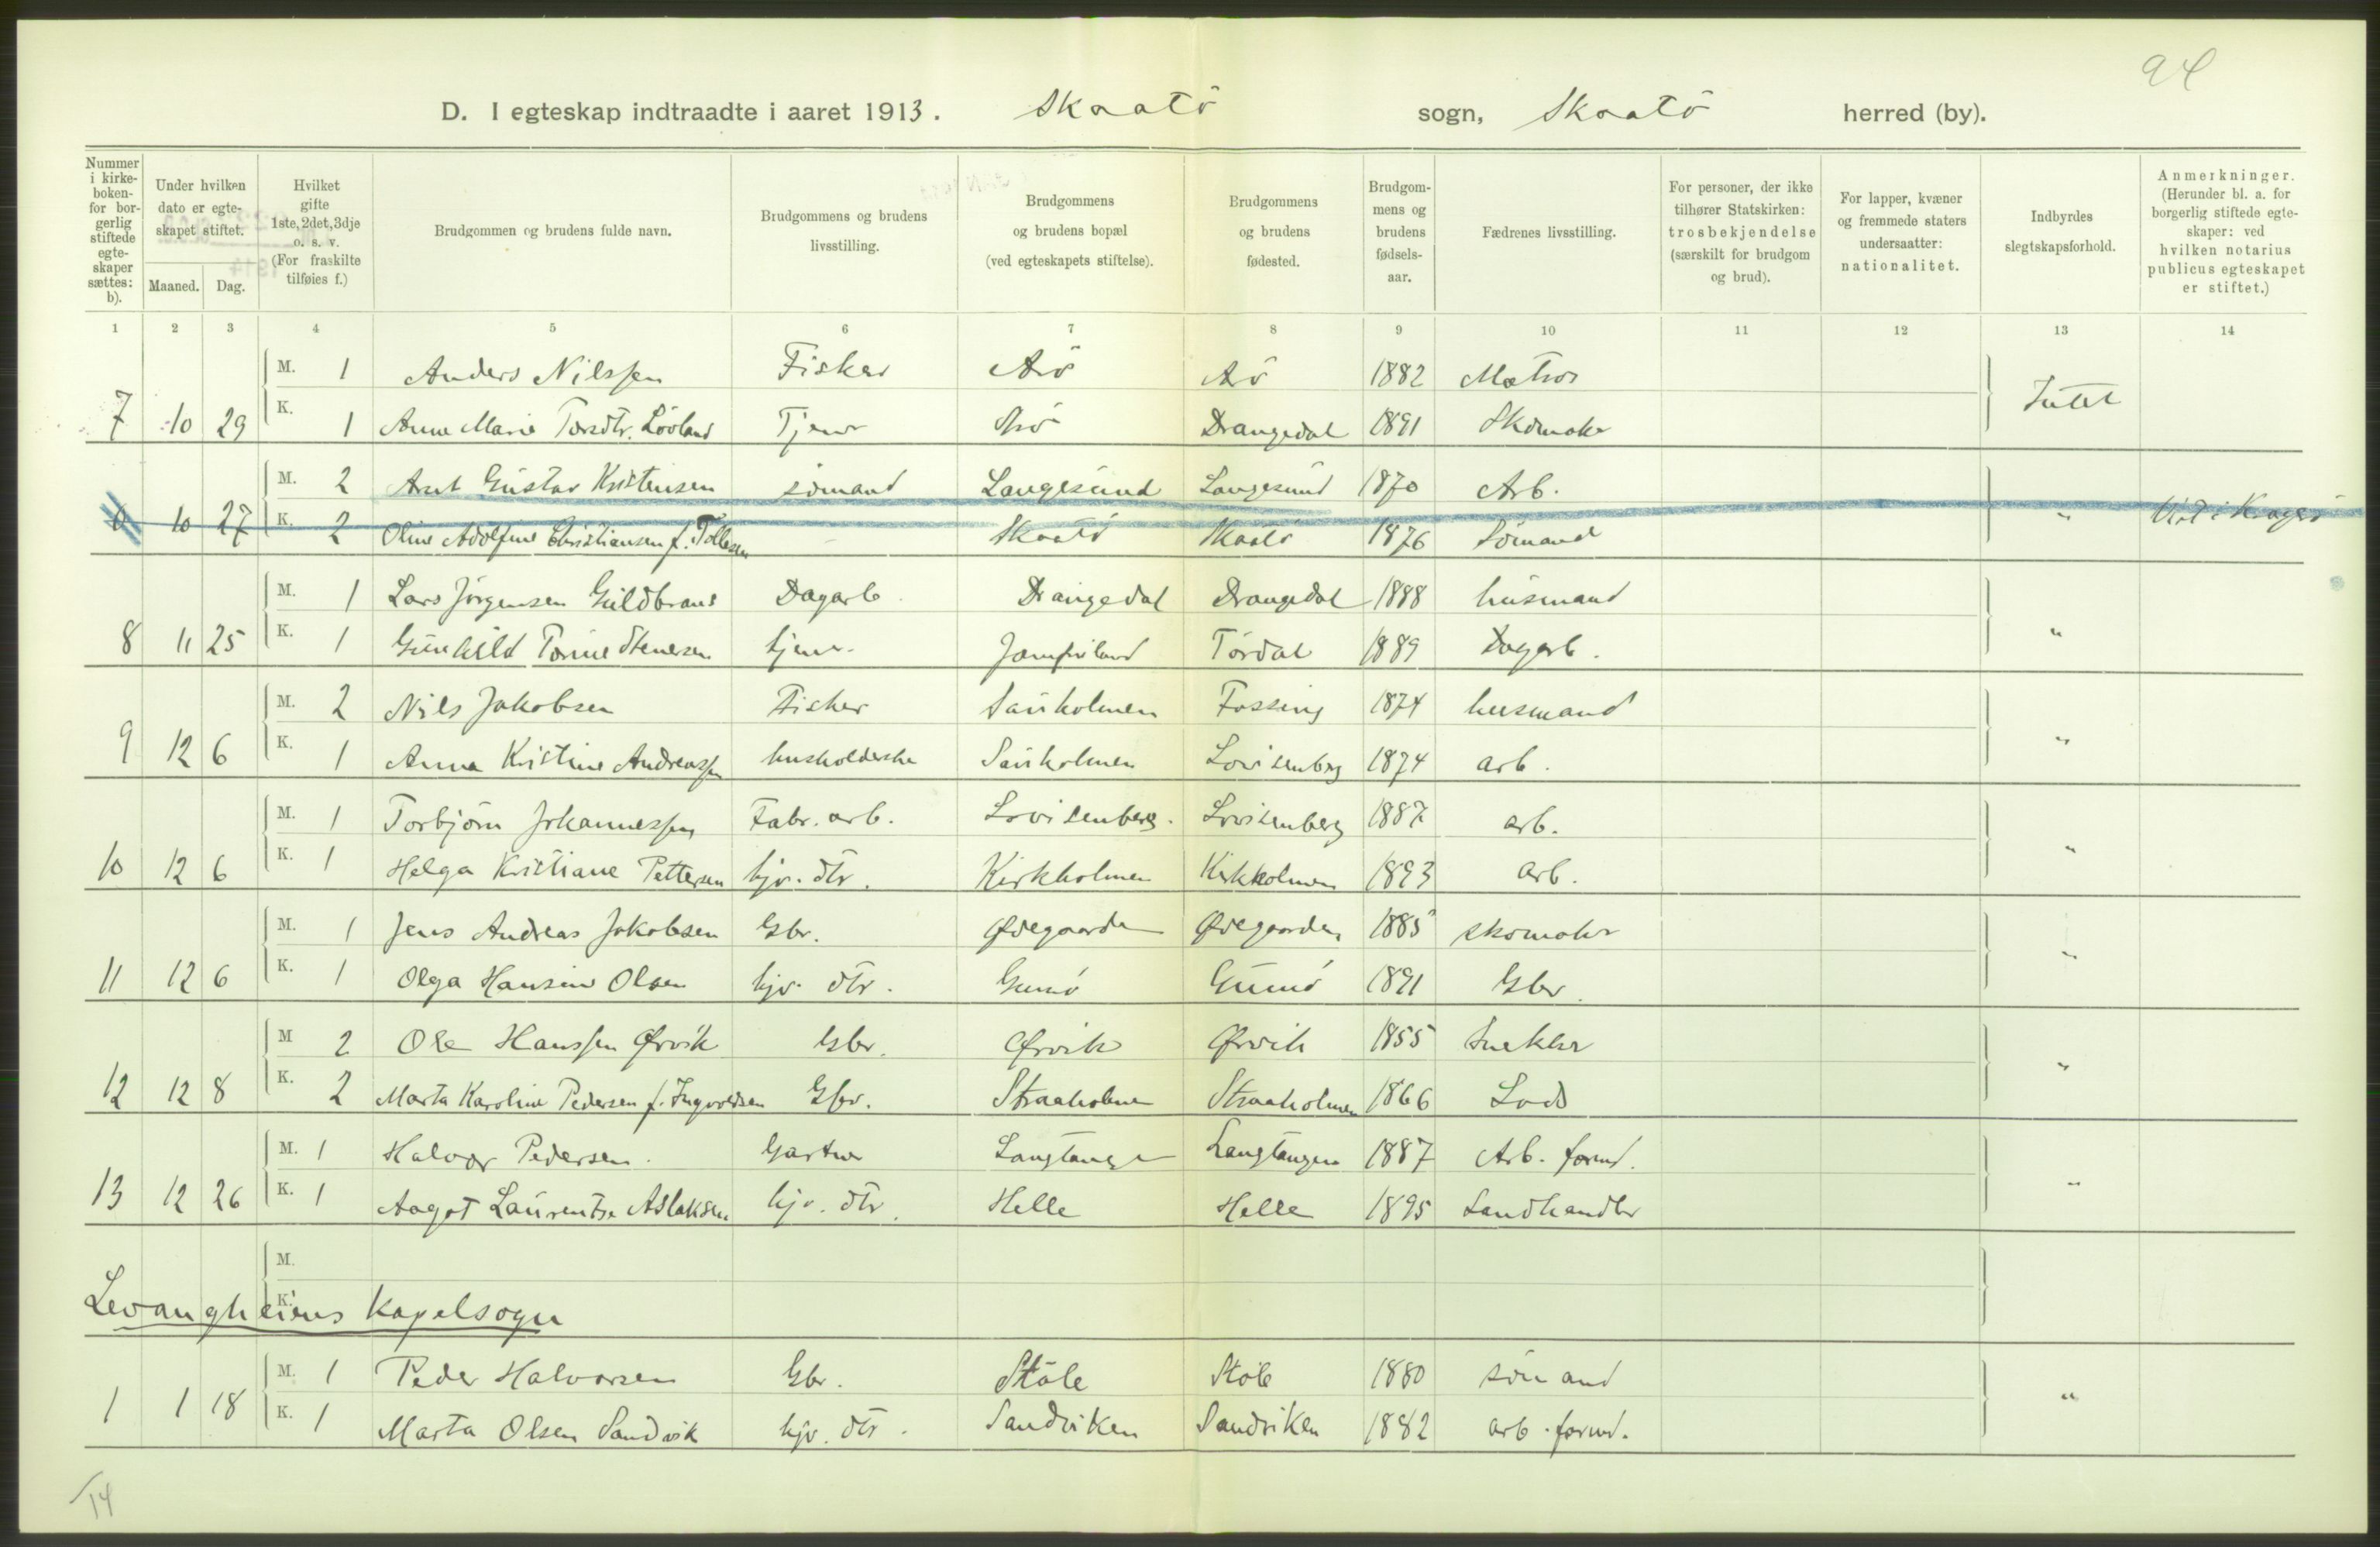 94
D. I egteskap indtraadte i aaret 1913. Skaatö sogn, Skaatö herred (by).
Nummer i kirkeboken for borgerlig stiftede egteskaper sættes: b). Under hvilken dato er egteskapet stiftet. Maaned. Dag. Hvilket gifte 1ste, 2det, 3dje o. s. v. (For fraskilte tilføies f.) Brudgommen og brudens fulde navn. Brudgommens og brudens livsstilling. Brudgommens og brudens bopæl (ved egteskapets stiftelse). Brudgommens og brudens fødested. Brudgommens og brudens fødselsaar. Fædrenes livsstilling. For personer, der ikke tilhører Statskirken: trosbekjendelse (særskilt for brudgom og brud). For lapper, kvæner og fremmede staters undersaatter: nationalitet. Indbyrdes slegtskapsforhold. Anmerkninger. (Herunder bl. a. for borgerlig stiftede egteskaper: ved hvilken notarius publicus egteskapet er stiftet.)
1 2 3 4 5 6 7 8 9 10 11 12 13 14
M. 1 Anders Nilssen Fisker Arö Arö 1882 Matros
7 10 29 K. 1 Anne Marie Torsdtr. Lövland Tjener Arö Drangedal 1891 Skomaker Intet
M. 2 Arnt Gustav Kristensen sömand Langesund Langesund 1870 Arb.
10 27 K. 2 Oline Adolfine Christiansen f. Tollesen - Skaatö Skaatö 1876 Sömand " Viet i Kragerö
M. 1 Lars Jörgensen Guldbrans Dagarb. Drangedal Drangedal 1888 husmand
8 11 25 K. 1 Gunhild Torine Stenersen tjener Jomfruland Tördal 1889 Dagarb. "
M. 2 Nils Jakobsen Fisker Sauholmen Fossing 1874 husmand
9 12 6 K. 1 Anna Kristine Andreassen husholderske Sauholmen Lovisenberg 1874 arb. "
M. 1 Torbjörn Johannessen Fabr. arb. Lovisenberg. Lovisenberg 1887 arb.
10 12 6 K. 1 Helga Kristiane Pettersen hjv. dtr. Kirkholmen Kirkholmen 1893 arb. "
M. 1 Jens Andreas Jakobsen Gbr. Ødegaarden Ødegaarden 1885 skomaker
11 12 6 K. 1 Olga Hansine Olsen hjv. dtr. Gumö Gumö 1891 Gbr. "
M 2 Ole Hanssen Ørvik Gbr. Ørvik Ørvik 1855 Snekker
12 12 8 K. 2 Marta Karoline Pedersen f. Ingvoldsen Gbr. Straaholmen Straaholmen 1866 Lods "
M. 1 Halvor Pedersen. Gartner Langtangen Langtangen 1887 Arb. formd.
13 12 26 K. 1 Aagot Laurentze Aslaksen hjv. dtr. Helle Helle 1895 Landhandler "
M.
K. Levangheiens Kapelsogn
M. 1 Peder Halvorsen Gbr. Stöle Stöle 1880 sömand
1 1 18 K. 1 Marta Olsen Sandvik hjv. dtr. Sandviken Sandviken 1882 arb. formd. "
14